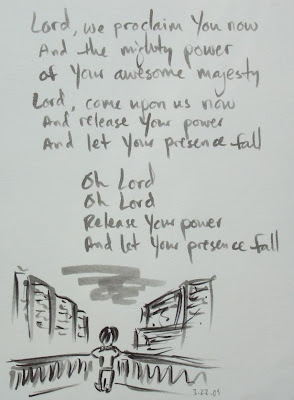 Lord, we proclaim You now
And the mighty power
of Your awesome majesty
Lord, come upon us now
And release Your power
And let Your presence fall
Oh Lord
Oh Lord
Release Your power
And let Your presence fall